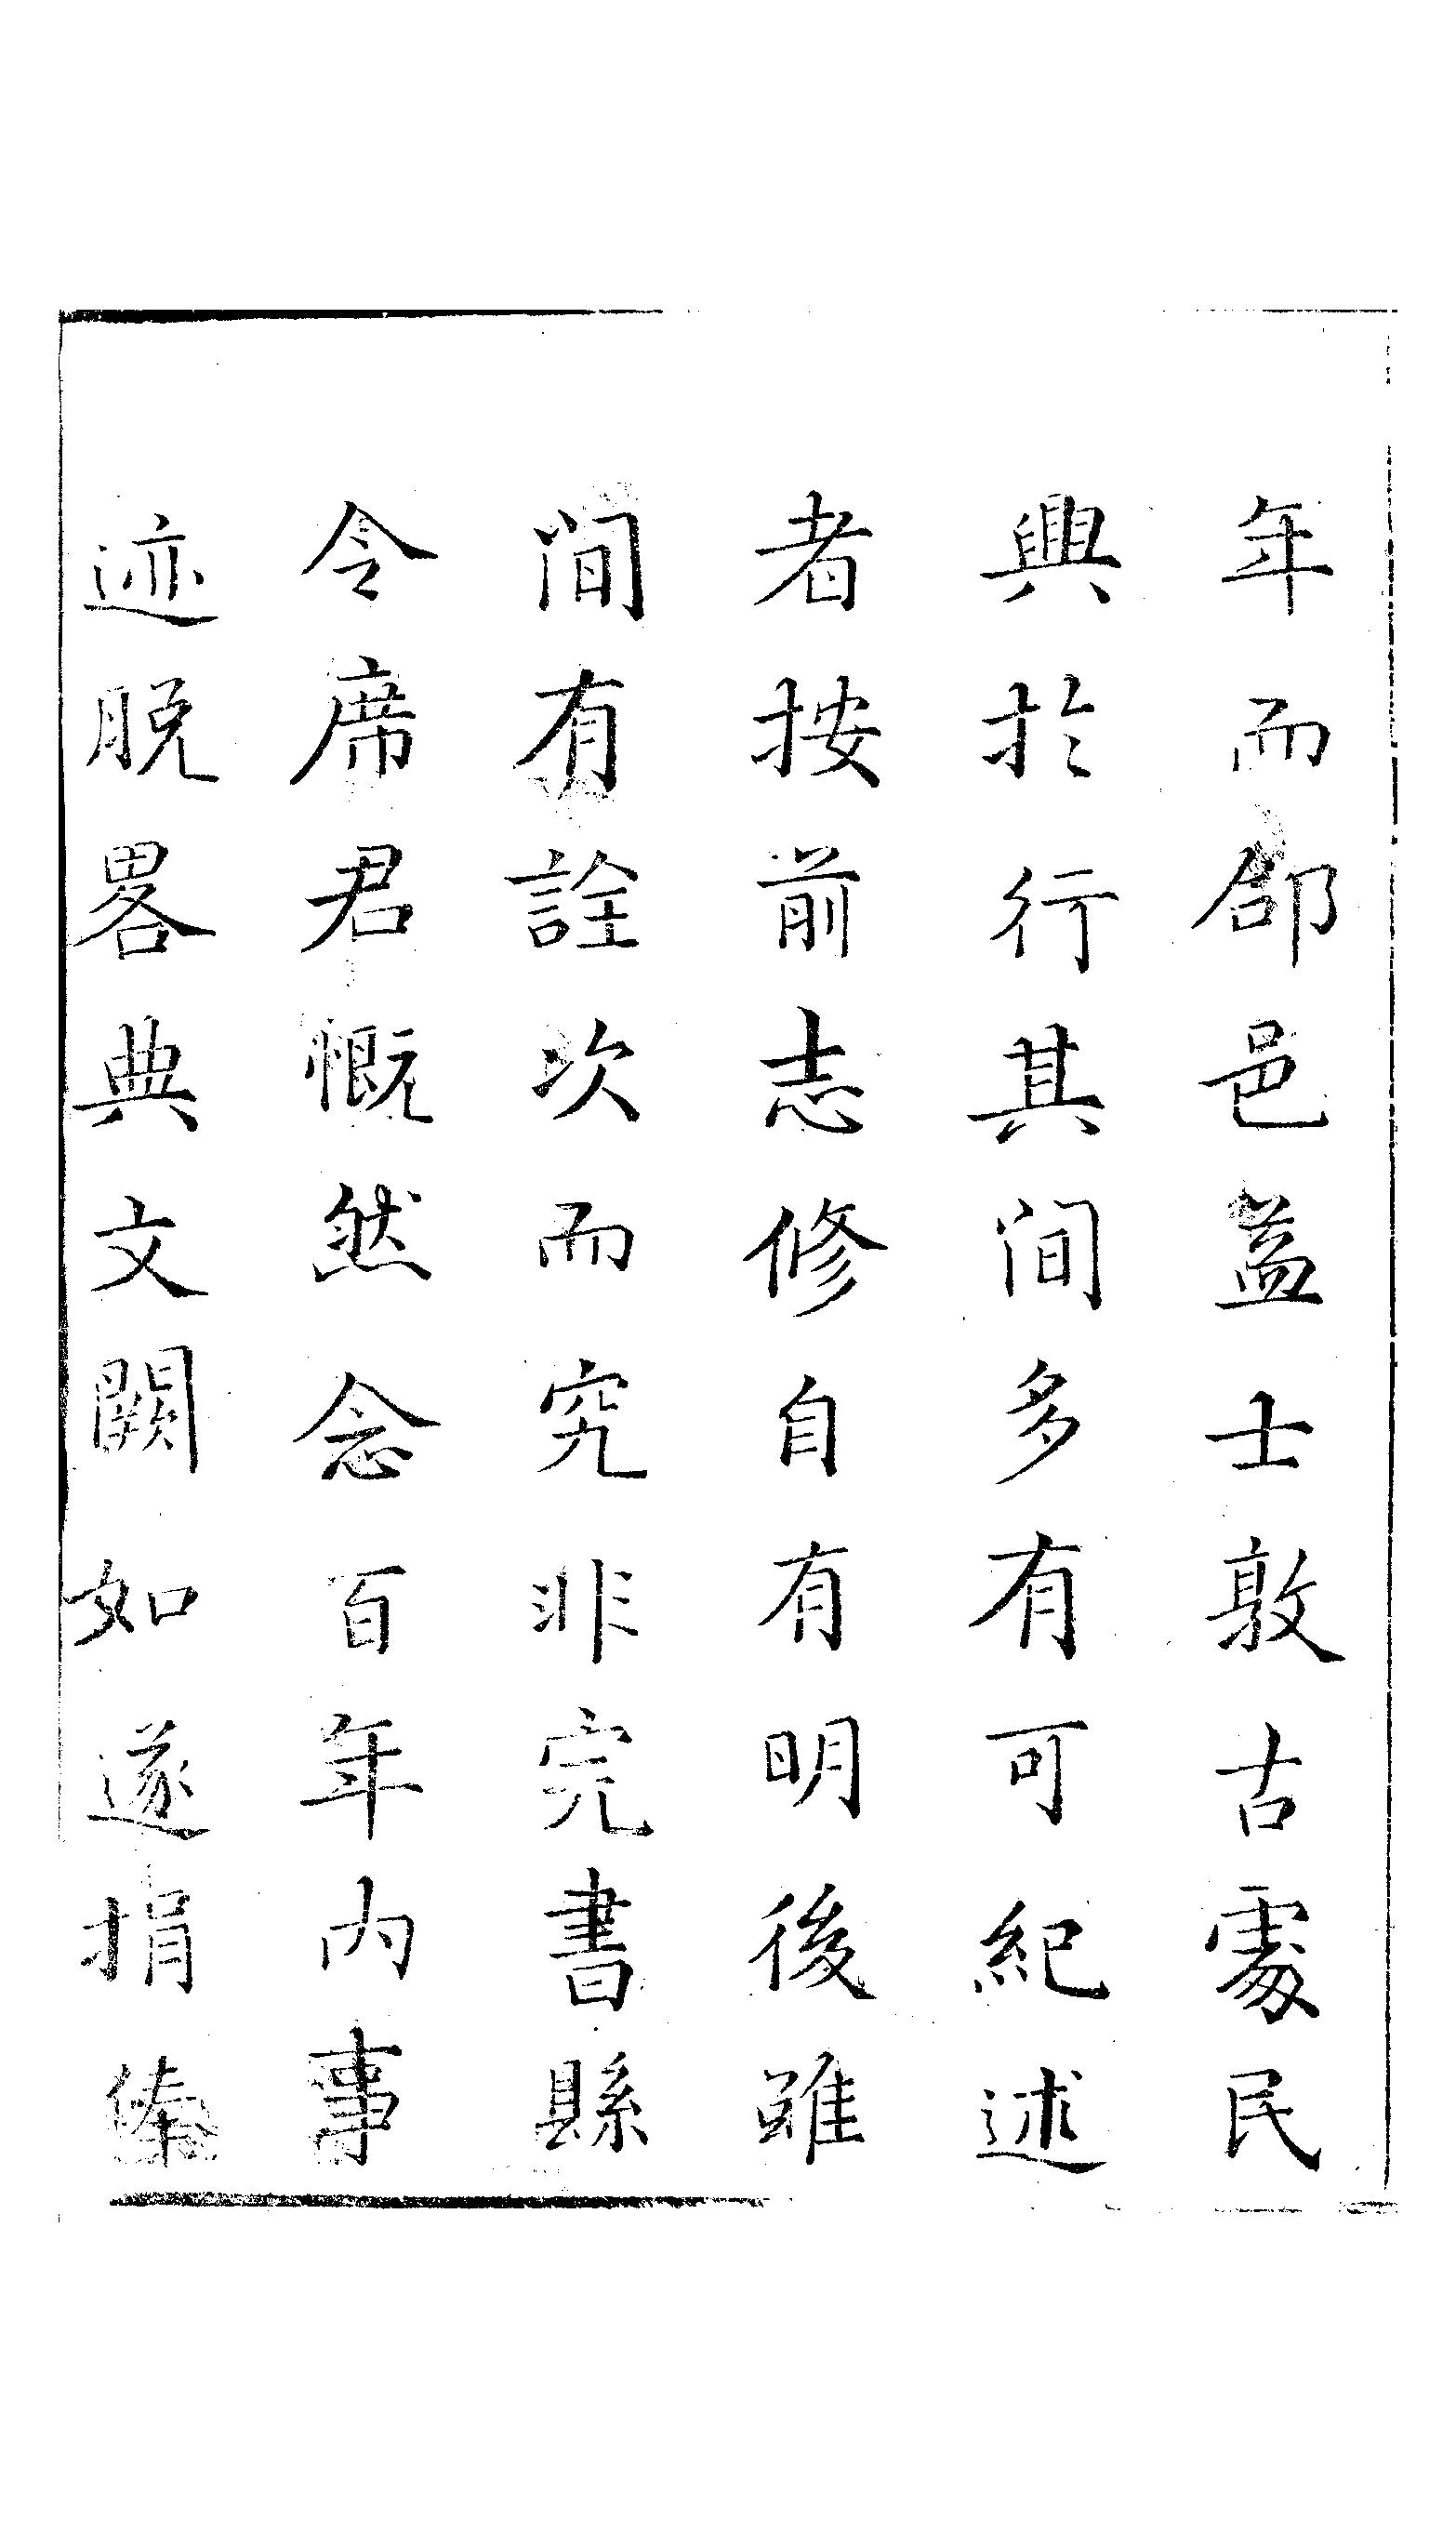 年而郃邑盖士敦古處民
興於行其間多有可紀述
者按前志修自有明後雖
間有詮次而究非完書縣
令席君慨然念百年内事
迹脱畧典文闕如遂捐俸